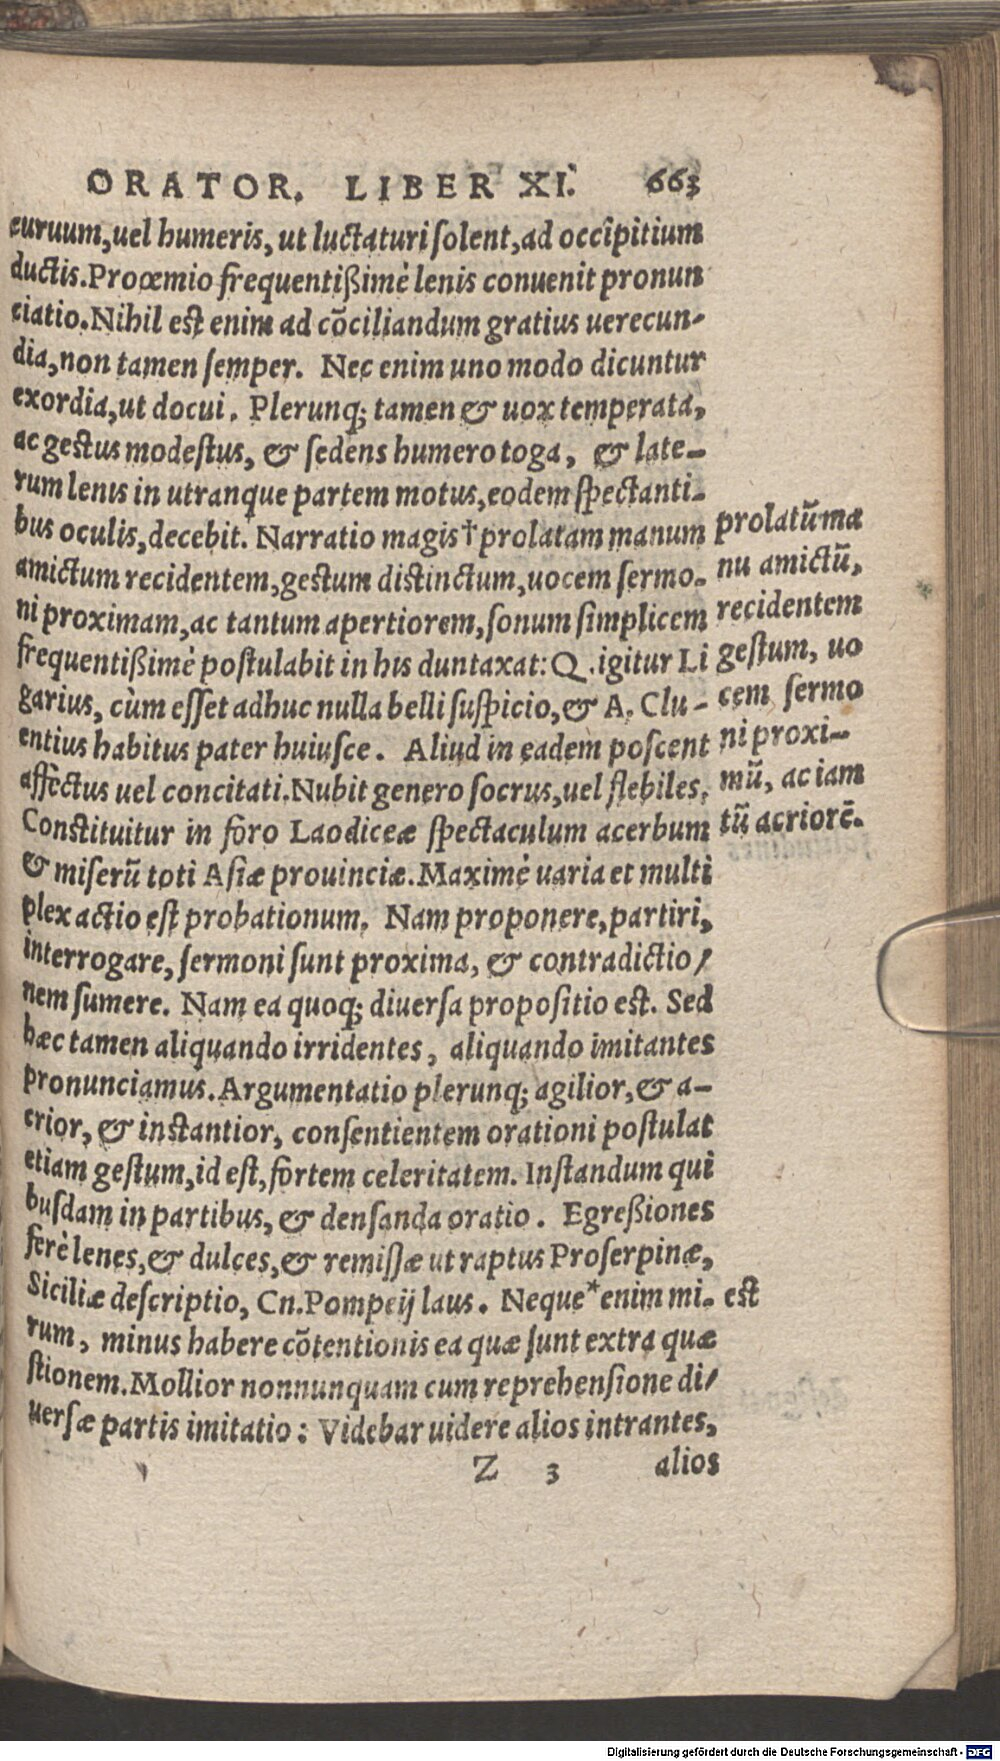 ORATOR. LIBER XI. 663
curuum, uel humeris, ut luctaturi ſolent, ad occipitium
ductis. Proœmio frequentißimè lenis conuenit pronun
ciatio. Nihil est enim ad cõciliandum gratius uerecun-
dia, non tamen ſemper. Nec enim uno modo dicuntur
exordia, ut docui. Plerunq; tamen & uox temperata,
ac gestus modeſtus, & ſedens humero toga, & late-
rum lenis in utranque partem motus, eodem ſpectanti-
bus oculis, decebit. Narratio magis† prolatam manum
amictum recidentem, gestum distinctum, uocem ſermo-
ni proximam, ac tantum apertiorem, ſonum ſimplicem
frequentißimè poſtulabit in his duntaxat: Q. igitur Li
garius, cùm eſſet adhuc nulla belli ſuſpicio, & A. Clu-
entius habitus pater huiuſce. Aliud in eadem poſcent
affectus uel concitati. Nubit genero ſocrus, uel flebiles,
Constituitur in foro Laodiceæ ſpectaculum acerbum
& miſerũ toti Aſiæ prouinciæ. Maximè uaria et multi
plex actio eſt probationum. Nam proponere, partiri,
interrogare, ſermoni ſunt proxima, & contradictio/
nem ſumere. Nam ea quoq; diuerſa propoſitio est. Sed
hæc tamen aliquando irridentes, aliquando imitantes
pronunciamus. Argumentatio plerunq; agilior, & a-
crior, & instantior, conſentientem orationi poſtulat
etiam geſtum, id eſt, fortem celeritatem. Inſtandum qui
buſdam in partibus, & denſanda oratio. Egreßiones
ferè lenes, & dulces, & remiſſæ ut raptus Proſerpinæ,
Siciliæ deſcriptio, Cn. Pompeij laus. Neque* enim mi-
rum, minus habere cõtentionis ea quæ ſunt extra quæ
ſtionem. Mollior nonnunquam cum reprehenſione di/
uerſæ partis imitatio: Videbar uidere alios intrantes,
Z 3 alios
prolatũ ma
nu amictũ,
recidentem
geſtum, uo
cem ſermo
ni proxi-
mũ, ac iam
tũ acriorẽ.
est
Digitalisierung gefördert durch die Deutsche Forschungsgemeinschaft - DFG